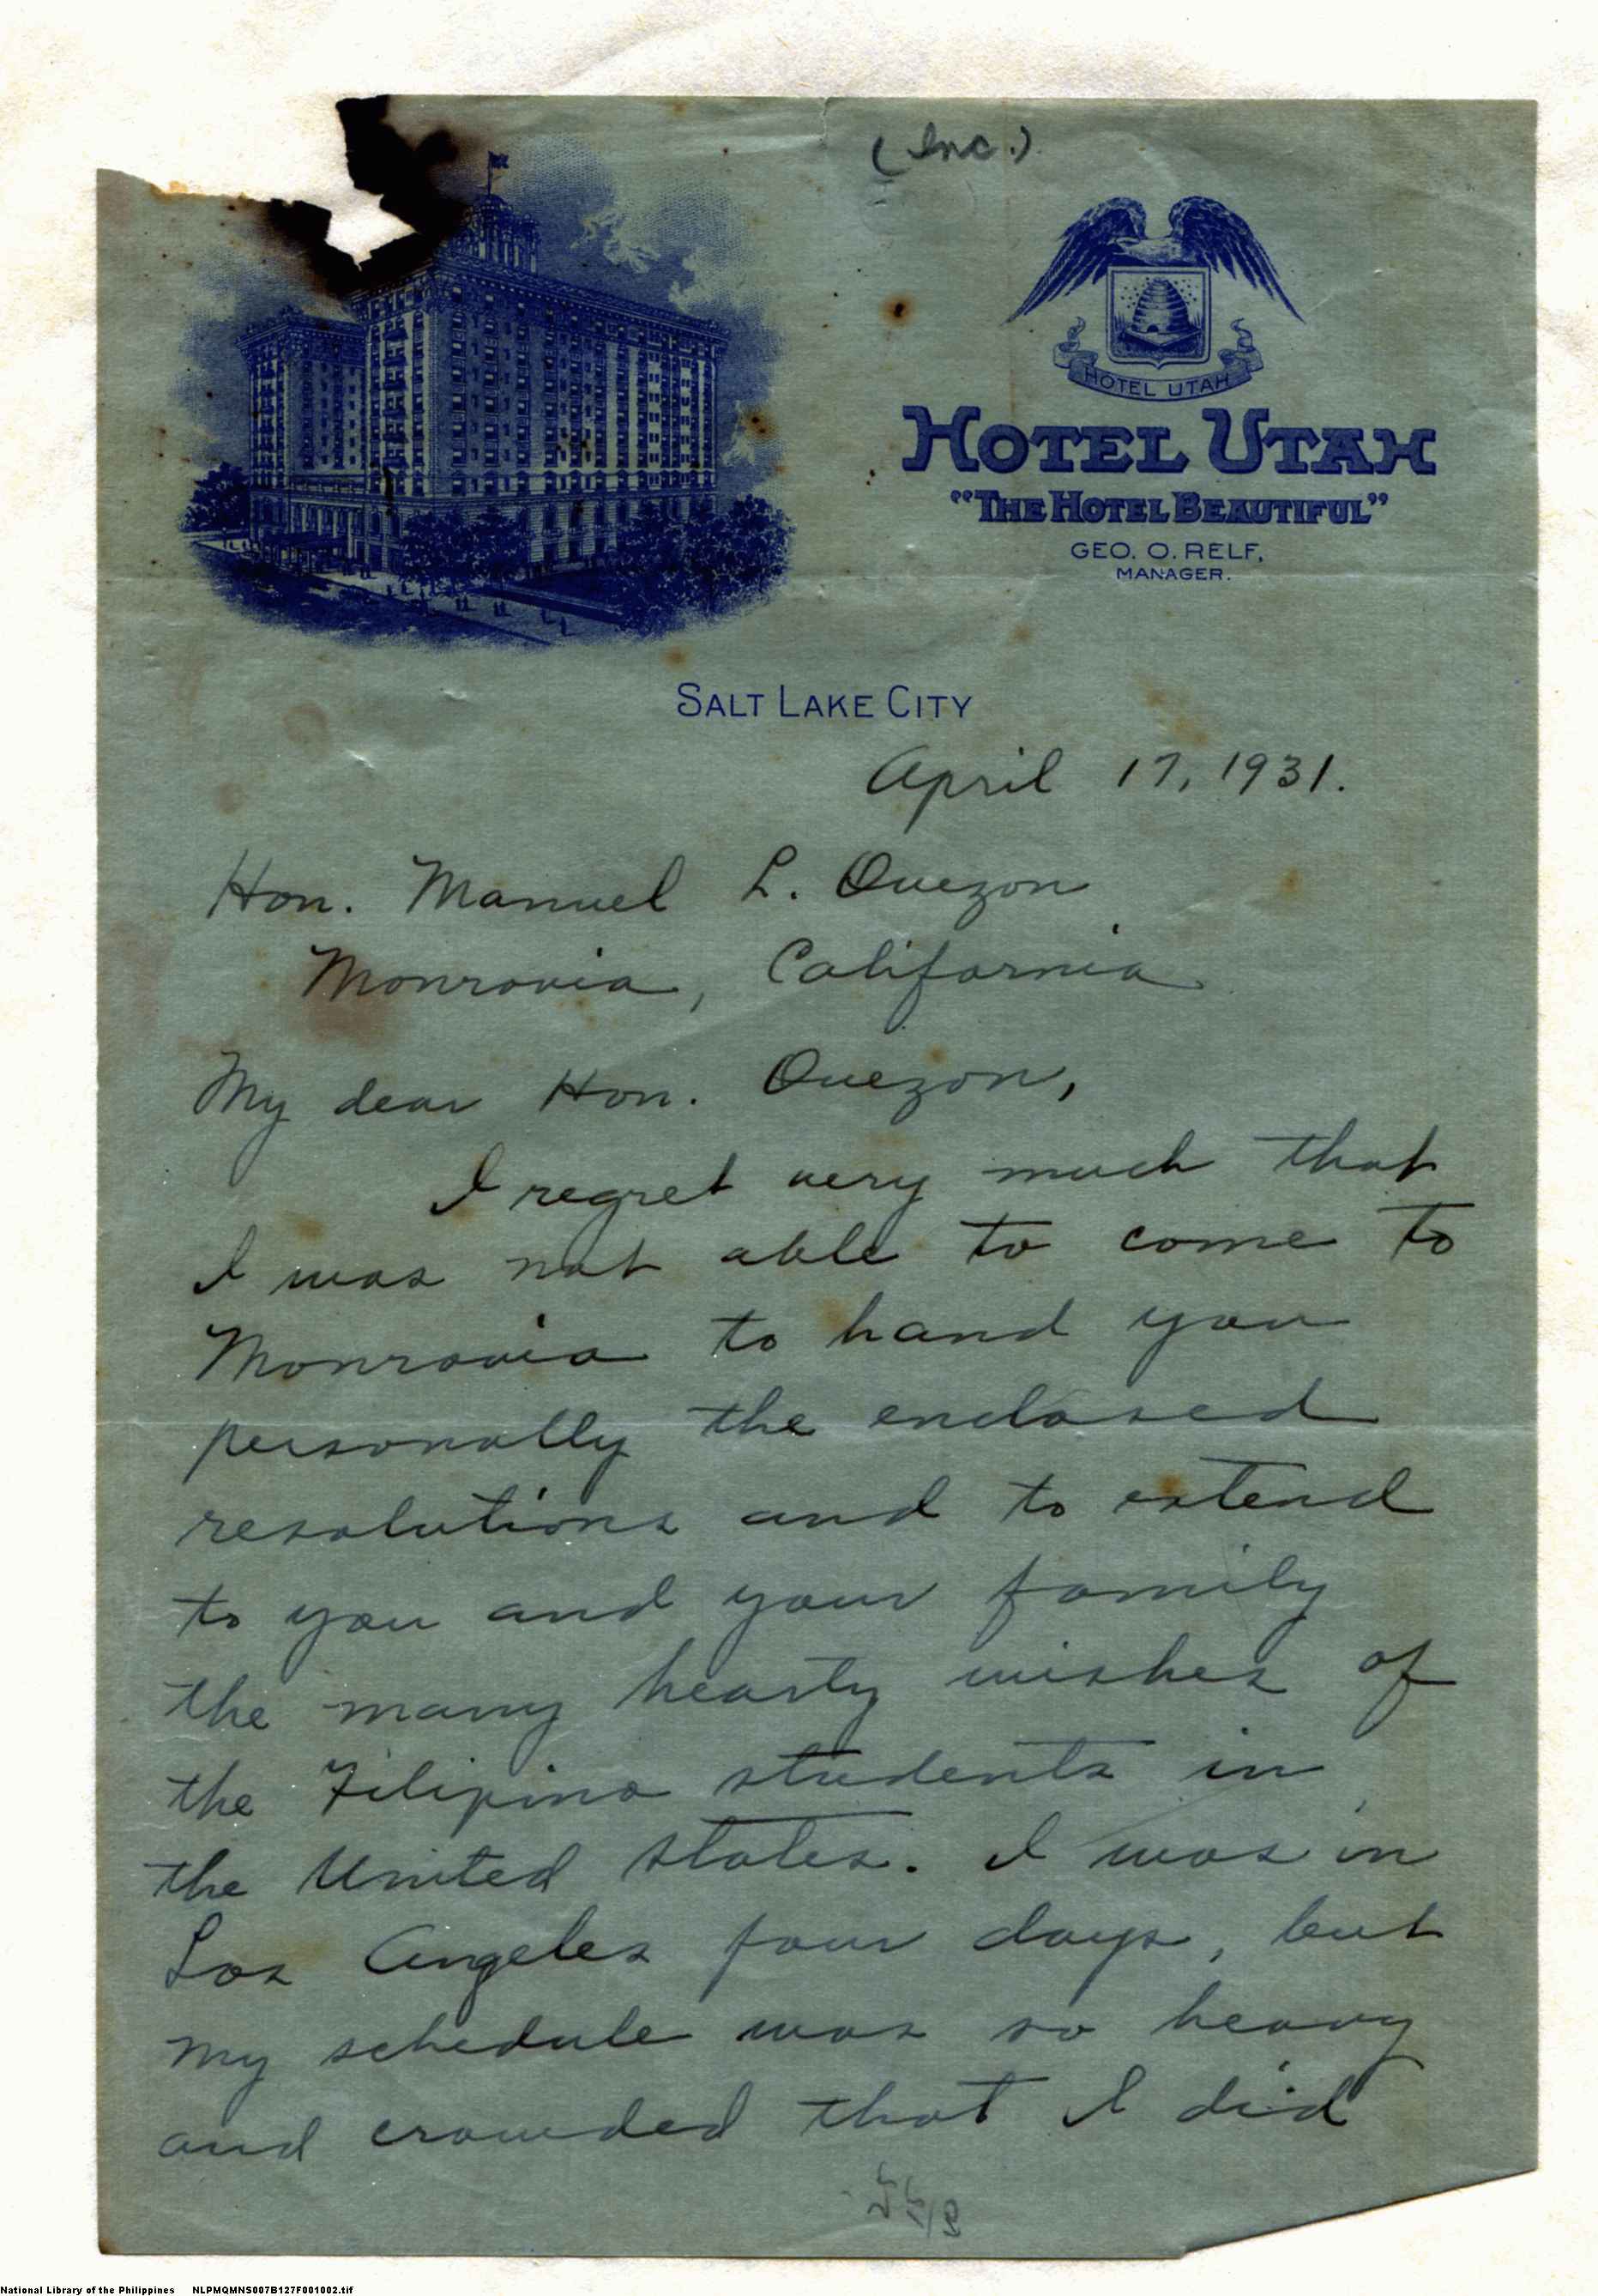 (Inc.)
HOTEL UTAH
HOTEL UTAH
"THE HOTEL BEAUTIFUL"
GEO. O. RELF,
MANAGER.
SALT LAKE CITY
April 17, 1931.
Hon. Manuel L. Quezon
Monrovia, California
My dear Hon. Quezon,
I regret very much that
I was not able to come to
Monrovia to hand you
personally the enclosed
resolutions and to extend
to you and your family
the many hearty wishes of
the Filipino students in
the United States. I was in
Los Angeles four days, but
my schedule was so heavy
and crowded that I did
National Library of the Philippines NLPMQMNS007B127F001002.tif